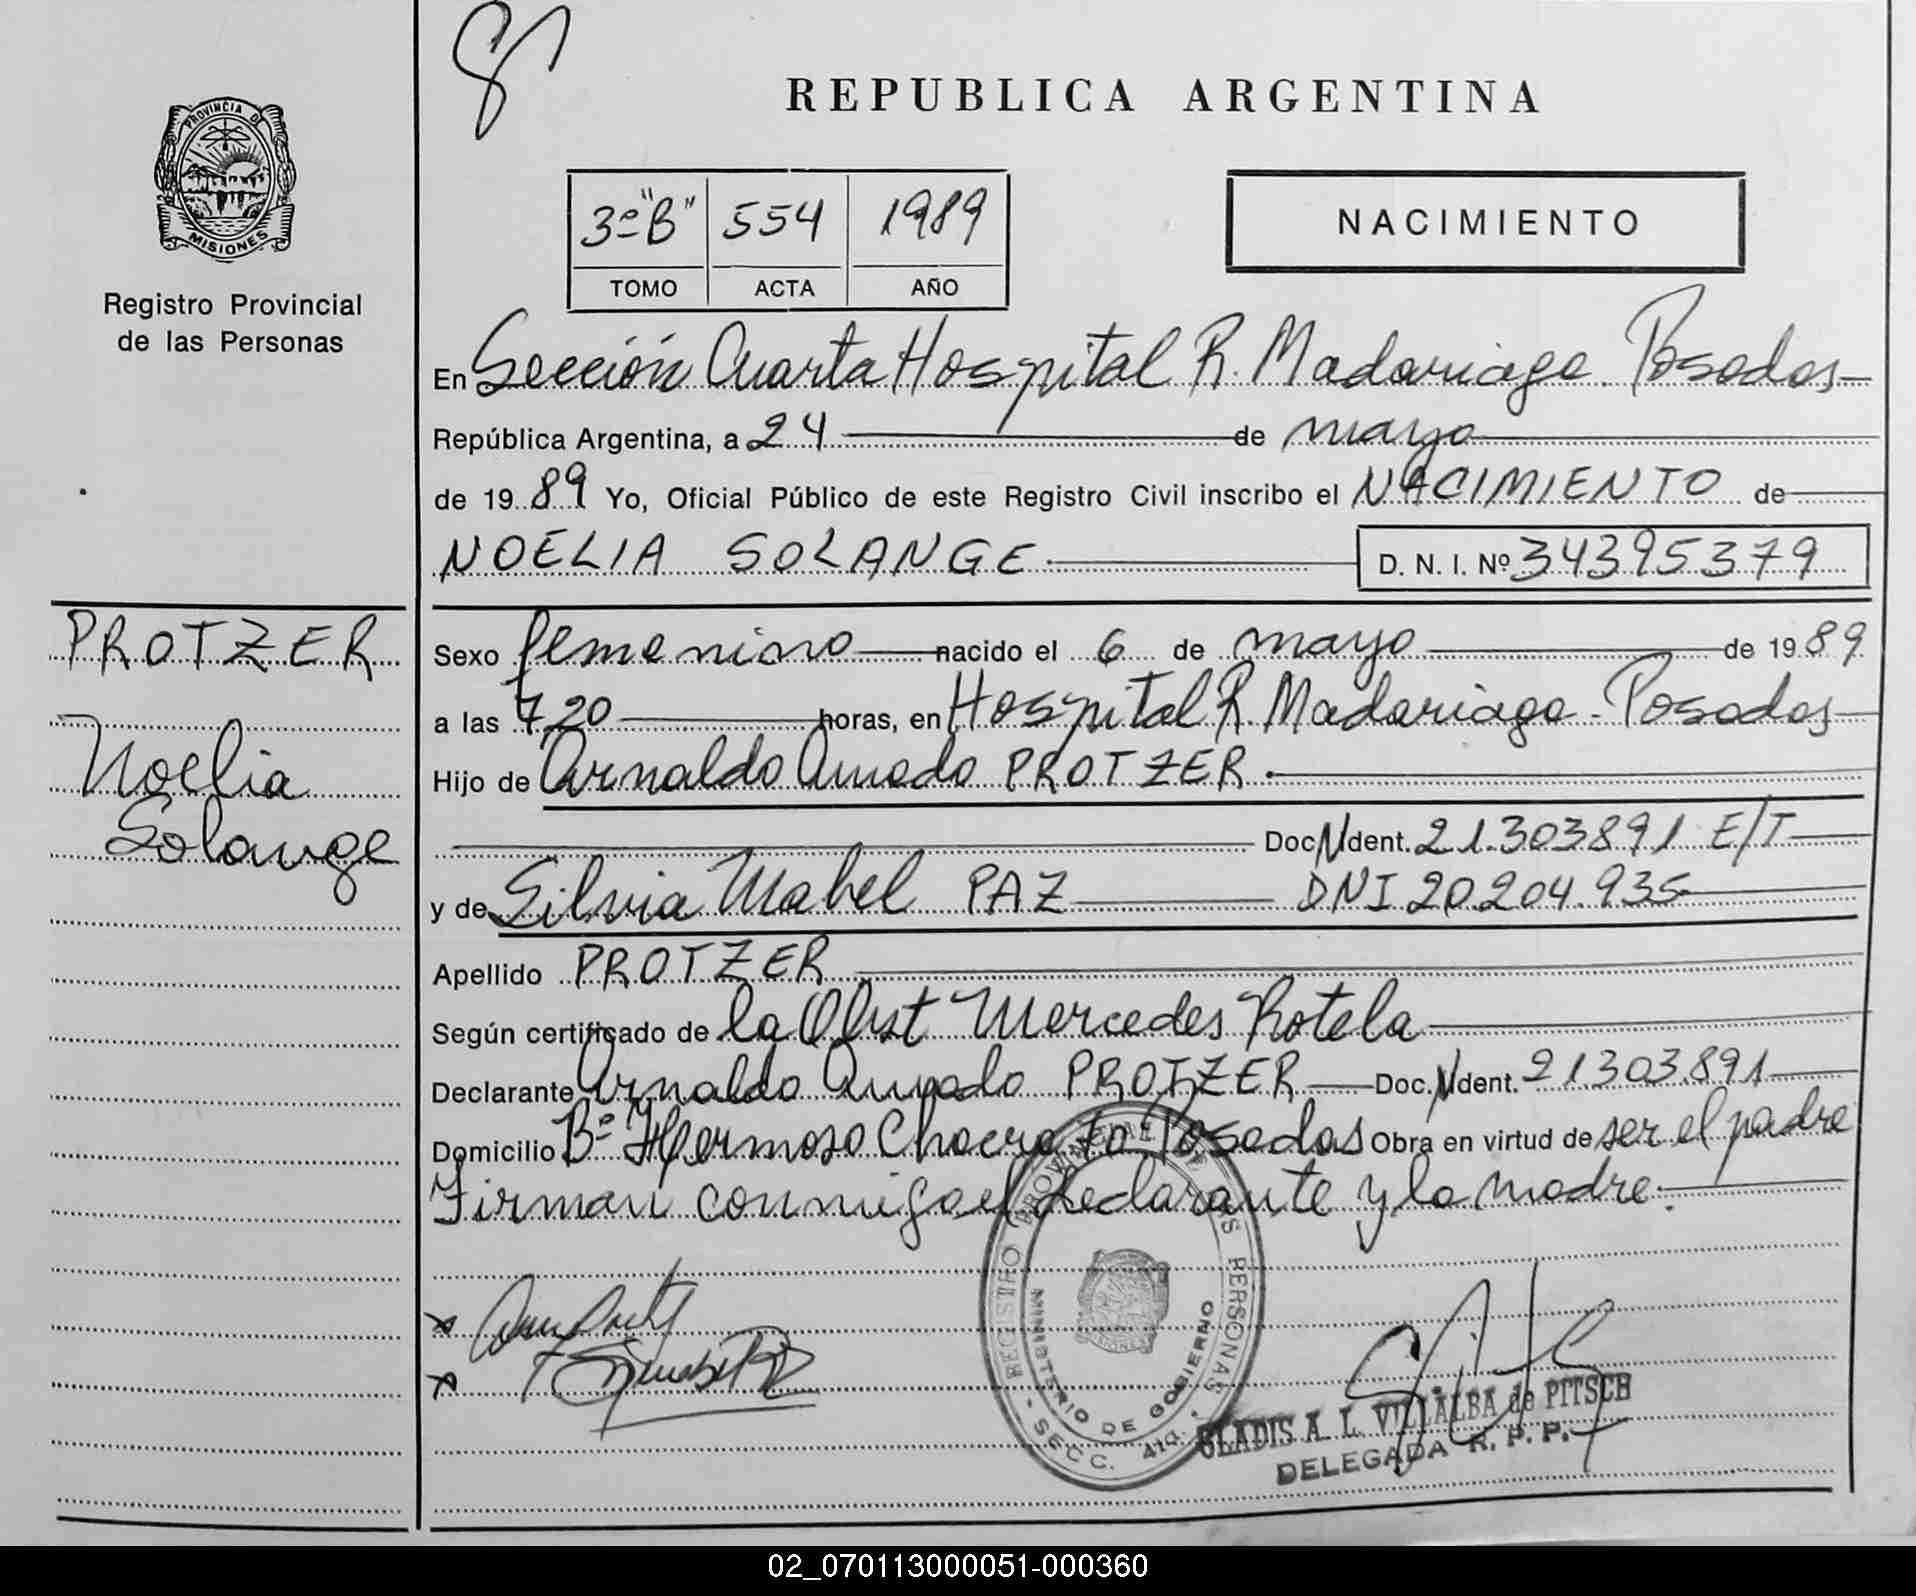 REPUBLICA ARGENTINA
PROVINCIA DE
MISIONES
Registro Provincial
de las Personas
3º "B" 554 1989
TOMO ACTA AÑO
NACIMIENTO
En Sección Cuarta Hospital R. Madariaga. Posadas
República Argentina, a 24 de mayo
de 1989 Yo, Oficial Público de este Registro Civil inscribo el NACIMIENTO de
NOELIA SOLANGE D. N. I. Nº 34395379
PROTZER
Noelia
Solange
Sexo femenino nacido el 6 de mayo de 1989
a las 7,20 horas, en Hospital R. Madariaga - Posadas
Hijo de Arnaldo Amado PROTZER.
Doc. N Ident. 21.303891 E/T
y de Silvia Mabel PAZ DNI 20.204.935
Apellido PROTZER
Según certificado de la Obst Mercedes Rotela
Declarante Arnaldo Amado PROTZER Doc. N Ident. 21303.891
Domicilio Bº Hermoso Chacra Posadas Obra en virtud de ser el padre
Firman conmigo el declarante y la madre.
REGISTRO PROVINCIAL DE LAS PERSONAS
MINISTERIO DE GOBIERNO
SECC. 4ta.
GLADIS A. L. VILLALBA de PITSCH
DELEGADA R. P. P.
02_070113000051-000360